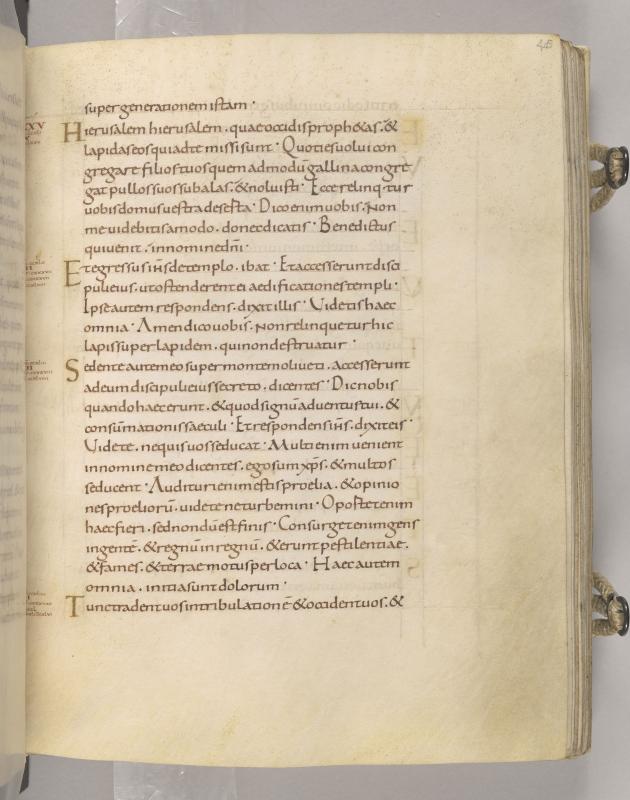 45
super generationem istam ·
XXV
Hierusalem hierusalem . quae occidis prophetas . &
lapidas eos qui ad te missi sunt · Quotiens uolui con
gregare filios tuos quemadmodū gallina congre
gat pullos suos sub alas . & noluisti · Ecce relinq·tur
uobis domus uestra deserta · Dico enim uobis . Non
me uidebitis amodo . donec dicatis · Benedictus
qui uenit . in nomine dn̄i ·
Et egressus ih̄s de templo . ibat · Et accesserunt disci
puli eius . ut ostenderent ei aedificationes templi ·
Ipse autem respondens . dixit illis · Uidetis haec
omnia · Amen dico uobis . Non relinquetur hic
lapis super lapidem . qui non destruatur ·
Sedente autem eo super montem oliueti . Accesserunt
ad eum discipuli eius secreto . dicentes · Dic nobis
quando haec erunt . & quod signū aduentus tui . &
consūmationis saeculi · Et respondens ih̄s . dixit eis ·
Uidete . nequis uos seducat · Multi enim uenient
in nomine meo dicentes . ego sum xp̄s . & multos
seducent · Audituri enim estis proelia . & opinio
nes proeliorū . uidete ne turbemini · Oportet enim
haec fieri . sed nondū est finis · Consurget enim gens
in gentē . & regnū in regnū . & erunt pestilentiae .
& fames . & terrae motus per loca · Haec autem
omnia . initia sunt dolorum ·
Tunc tradent uos in tribulationē & occident uos . &